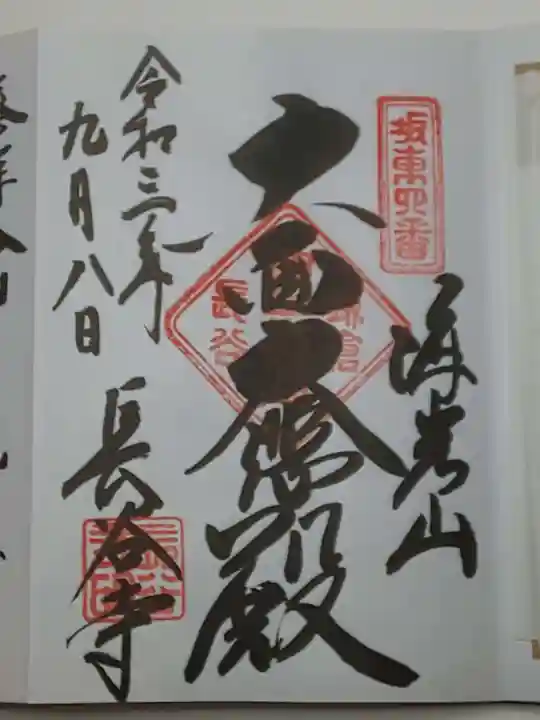 坂東四番
海光山
十一面大悲殿
鎌倉
長谷
令和三年
九月八日
長谷寺